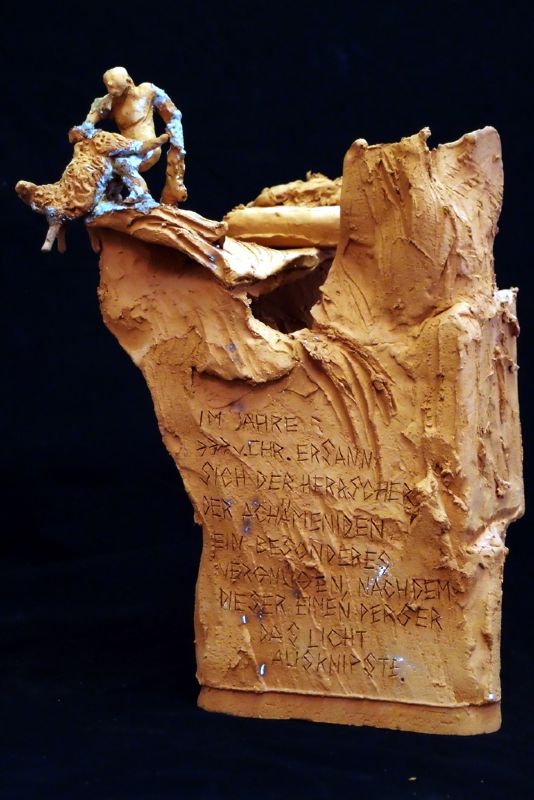 IM JAHRE
333 v. CHR. ERSANN
SICH DER HERRSCHER
DER ACHÄMENIDEN
EIN BESONDERES
VERGNÜGEN, NACHDEM
DIESER EINEN PERSER
DAS LICHT
AUSKNIPSTE.